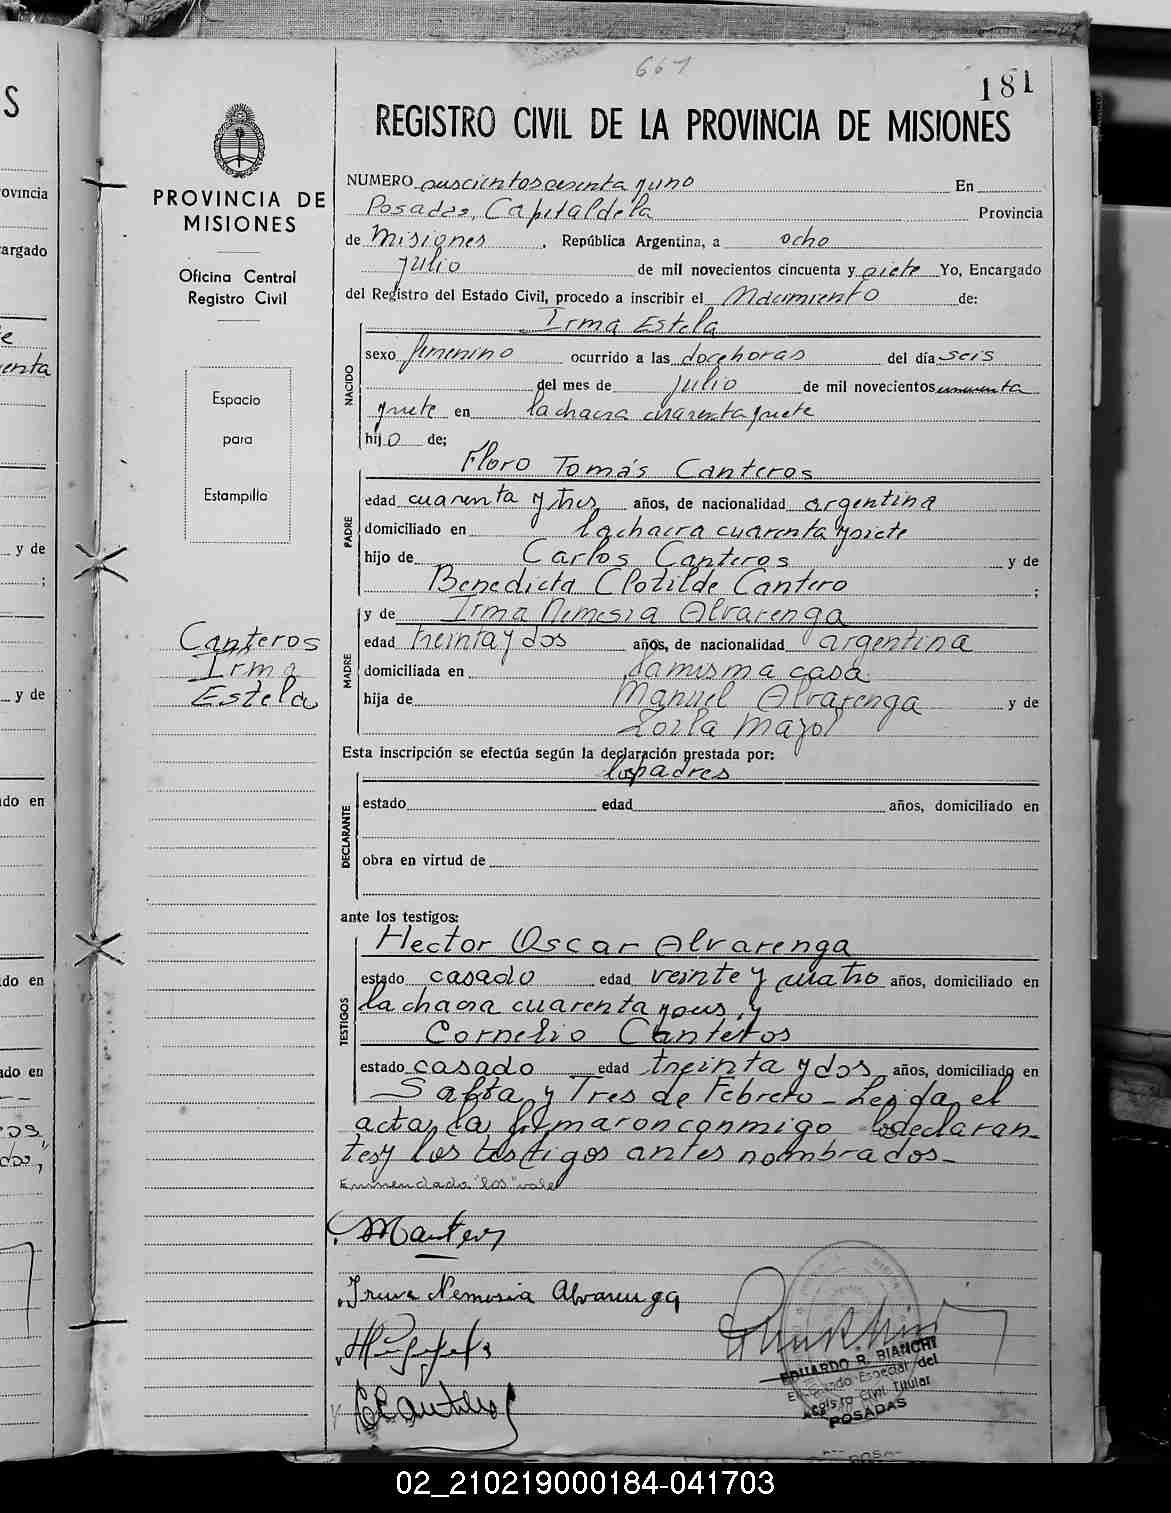 661
181
REGISTRO CIVIL DE LA PROVINCIA DE MISIONES
PROVINCIA DE
MISIONES
Oficina Central
Registro Civil
Espacio
para
Estampilla
Canteros
Irma
Estela
NUMERO seiscientos sesenta y uno En
Posadas, Capital de la Provincia
de Misiones, República Argentina, a ocho
julio de mil novecientos cincuenta y siete Yo, Encargado
del Registro del Estado Civil, procedo a inscribir el Nacimiento de:
NACIDO
Irma Estela
sexo femenino ocurrido a las doce horas del día seis
del mes de julio de mil novecientos cincuenta
y siete en la chacra cuarenta y siete
hijo de;
PADRE
Floro Tomás Canteros
edad cuarenta y tres años, de nacionalidad argentina
domiciliado en la chacra cuarenta y siete
hijo de Carlos Canteros y de
Benedicta Clotilde Cantero ;
MADRE
y de Irma Nemesia Alvarenga
edad treinta y dos años, de nacionalidad argentina
domiciliada en la misma casa
hija de Manuel Alvarenga y de
Zoila Mazol
Esta inscripción se efectúa según la declaración prestada por:
los padres
DECLARANTE
estado edad años, domiciliado en
obra en virtud de
ante los testigos:
TESTIGOS
Hector Oscar Alvarenga
estado casado edad veinte y cuatro años, domiciliado en
la chacra cuarenta y seis, y
Cornelio Canteros
estado casado edad treinta y dos años, domiciliado en
Salta y Tres de Febrero - Leida el
acta, la firmaron conmigo los declaran-
tes y los testigos antes nombrados-
Enmendado "los" vale
Irma Nemesia Alvarenga
EDUARDO R. BIANCHI
Encargado Especial del
Registro Civil Titular
POSADAS
02_210219000184-041703